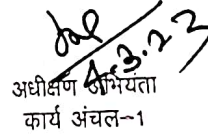 4.3.23
अधीक्षण अभियंता
कार्य अंचल-1